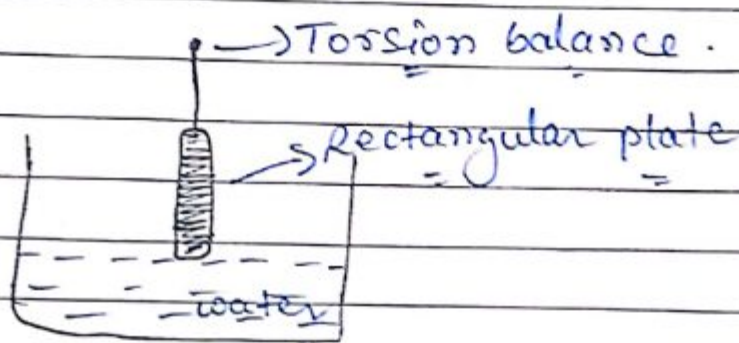 Torsion balance.
Rectangular plate
water